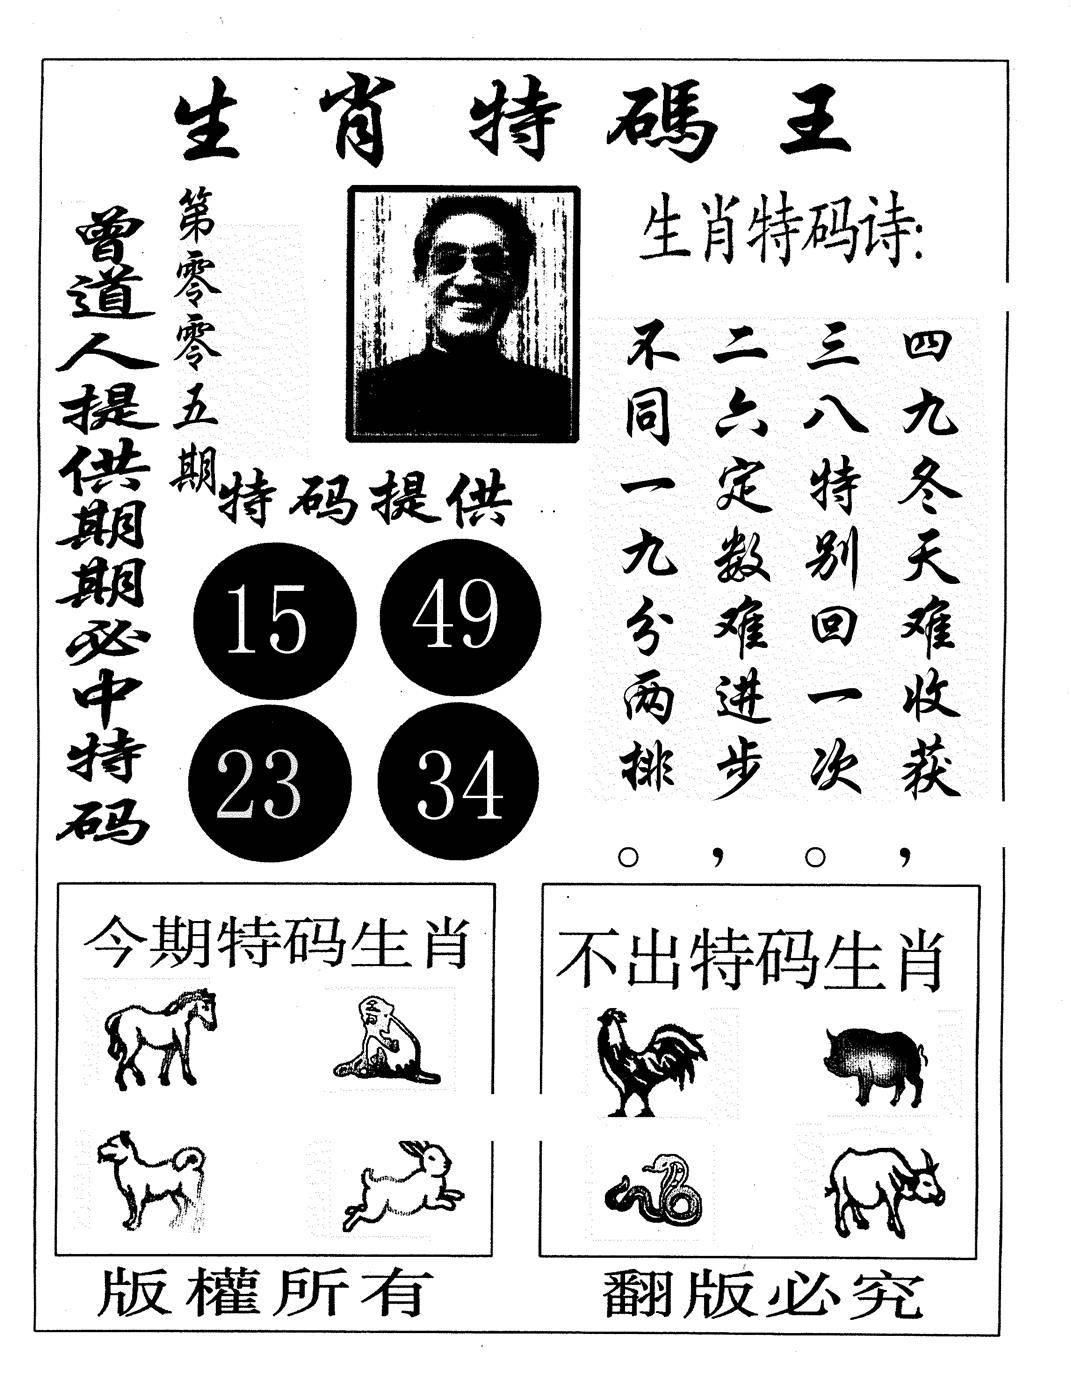 生肖特碼王
曾道人提供期期必中特码
第零零五期
生肖特码诗:
四九冬天难收获，
三八特别回一次。
二六定数难进步，
不同一九分两排。
特码提供
15 49
23 34
今期特码生肖
不出特码生肖
版權所有
翻版必究